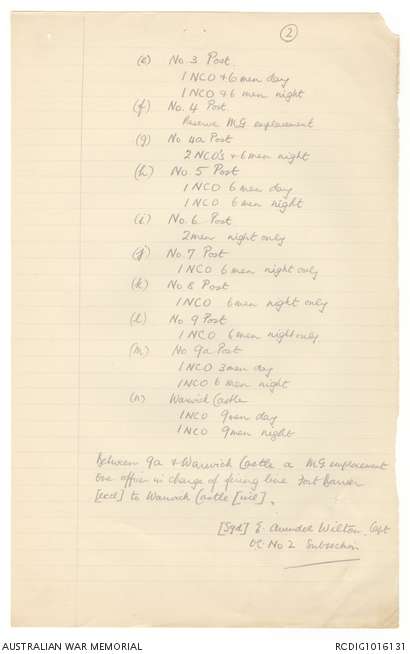 (2)
(e) No. 3 Post.
1 NCO + 6 men day
1 NCO + 6 men night
(f) No. 4 Post
Reserve M.G. emplacement
(g) No. 4a Post
2 NCO's + 6 men night
(h) No. 5 Post
1 NCO 6 men day
1 NCO 6 men night
(i) No. 6 Post
2 men night only
(j) No. 7 Post
1 NCO 6 men night only
(k) No 8 Post
1 NCO 6 men night only
(l) No 9 Post
1 NCO 6 men night only
(m) No 9a Post
1 NCO 3 men day
1 NCO 6 men night
(n) Warwick Castle
1 NCO 9 men day
1 NCO 9 men night
Between 9a + Warwick Castle a M.G emplacement
One officer in charge of firing line Fort
[excl] to Warwick Castle [incl].
[Sgd] E. Wilton. Capt
OC. No 2 Subsection
AUSTRALIAN WAR MEMORIAL
RCDIG1016131